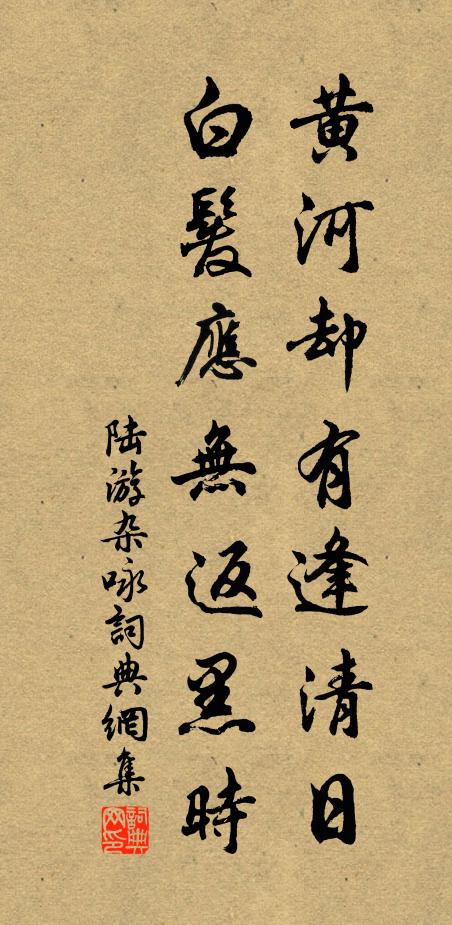 黄河却有逢清日
白髮應無返黑時
陆游杂咏詞典網集
詞典網印